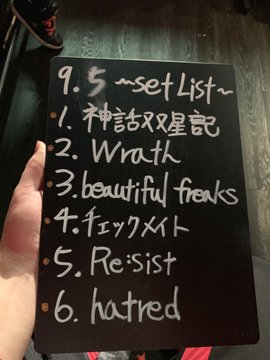 9. 5 ~setList~
1. 神話双星記
2. Wrath
3. beautiful freaks
4. チェックメイト
5. Re:sist
6. hatred